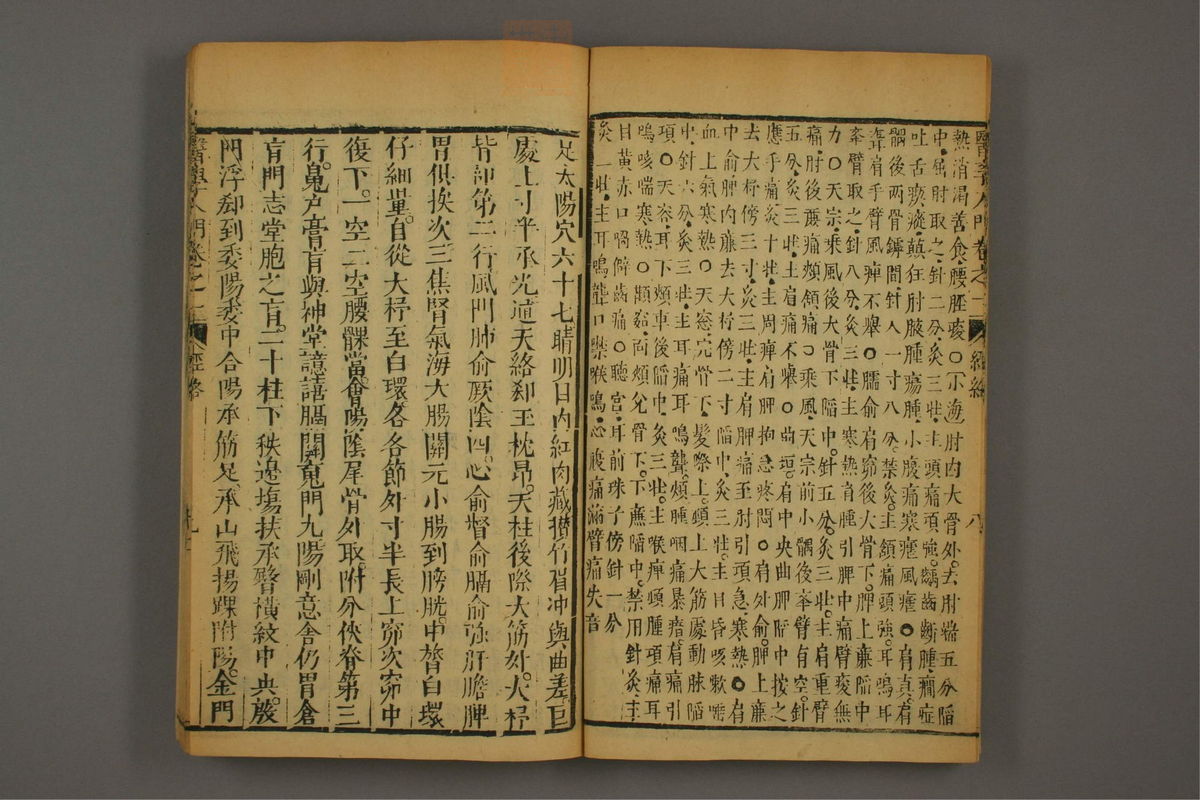 醫學入門卷之一　經絡　八
熱消渴善食腰脛痠○小海肘內大骨外去肘端五分陷
中屈肘取之針二分灸三壯主頭痛項強齲齒齦腫癎症
吐舌瘈瘲癲狂肘腋腫瘍腫小腹痛寒瘧風瘧○肩真肩
髃後兩骨罅間針入一寸八分禁灸主頷痛頭強耳鳴耳
聾肩手臂風痺不舉○臑俞肩窌後大骨下胛上廉陷中
舉臂取之針八分灸三壯主寒熱肩腫引胛中痛臂痠無
力○天宗秉風後大骨下陷中針五分灸三壯主肩重臂
痛肘後廉痛頰頷痛○秉風天宗前小髃後舉臂有空針
五分灸三壯主肩痛不舉○曲垣肩中央曲胛陷中按之
應手痛灸十壯主周痺肩胛拘急疼悶○肩外俞胛上廉
去大杼傍三寸灸三壯主肩胛痛至肘引項急寒熱○肩
中俞胛內廉去大杼傍二寸陷中灸三壯主目昏咳嗽唾
血上氣寒熱○天窓完骨下髮際上頸上大筋處動脉陷
中針六分灸三壯主耳痛耳鳴聾頰腫咽痛暴瘖肩痛引
項○天容耳下頰車後陷中灸三壯主喉痺頸腫項痛耳
鳴咳喘寒熱○顴窌面頄兌骨下下廉陷中禁用針灸主
目黃赤口喎僻齒痛○聽宮耳前珠子傍針一分
灸一壯主耳鳴聾口噤喉鳴心腹痛滿臂痛失音
足太陽穴六十七睛明目內紅肉藏攢竹眉冲與曲差五
處上寸半承光通天絡却玉枕昂天柱後際大筋外大杼
背部第二行風門肺俞厥陰四心俞督俞膈俞強肝膽脾
胃俱挨次三焦腎氣海大腸關元小腸到膀胱中膂白環
仔細量自從大杼至白環各各節外寸半長上窌次窌中
復下一空二空腰髁當會陽陰尾骨外取附分俠脊第三
行魄戶膏肓與神堂譩譆膈關䰟門九陽剛意舍仍胃倉
肓門志堂胞之肓二十柱下秩邊塲扶承臀橫紋中央殷
門浮郄到委陽委中合陽承筋是承山飛揚踝附陽金門
醫學入門卷之一　經絡